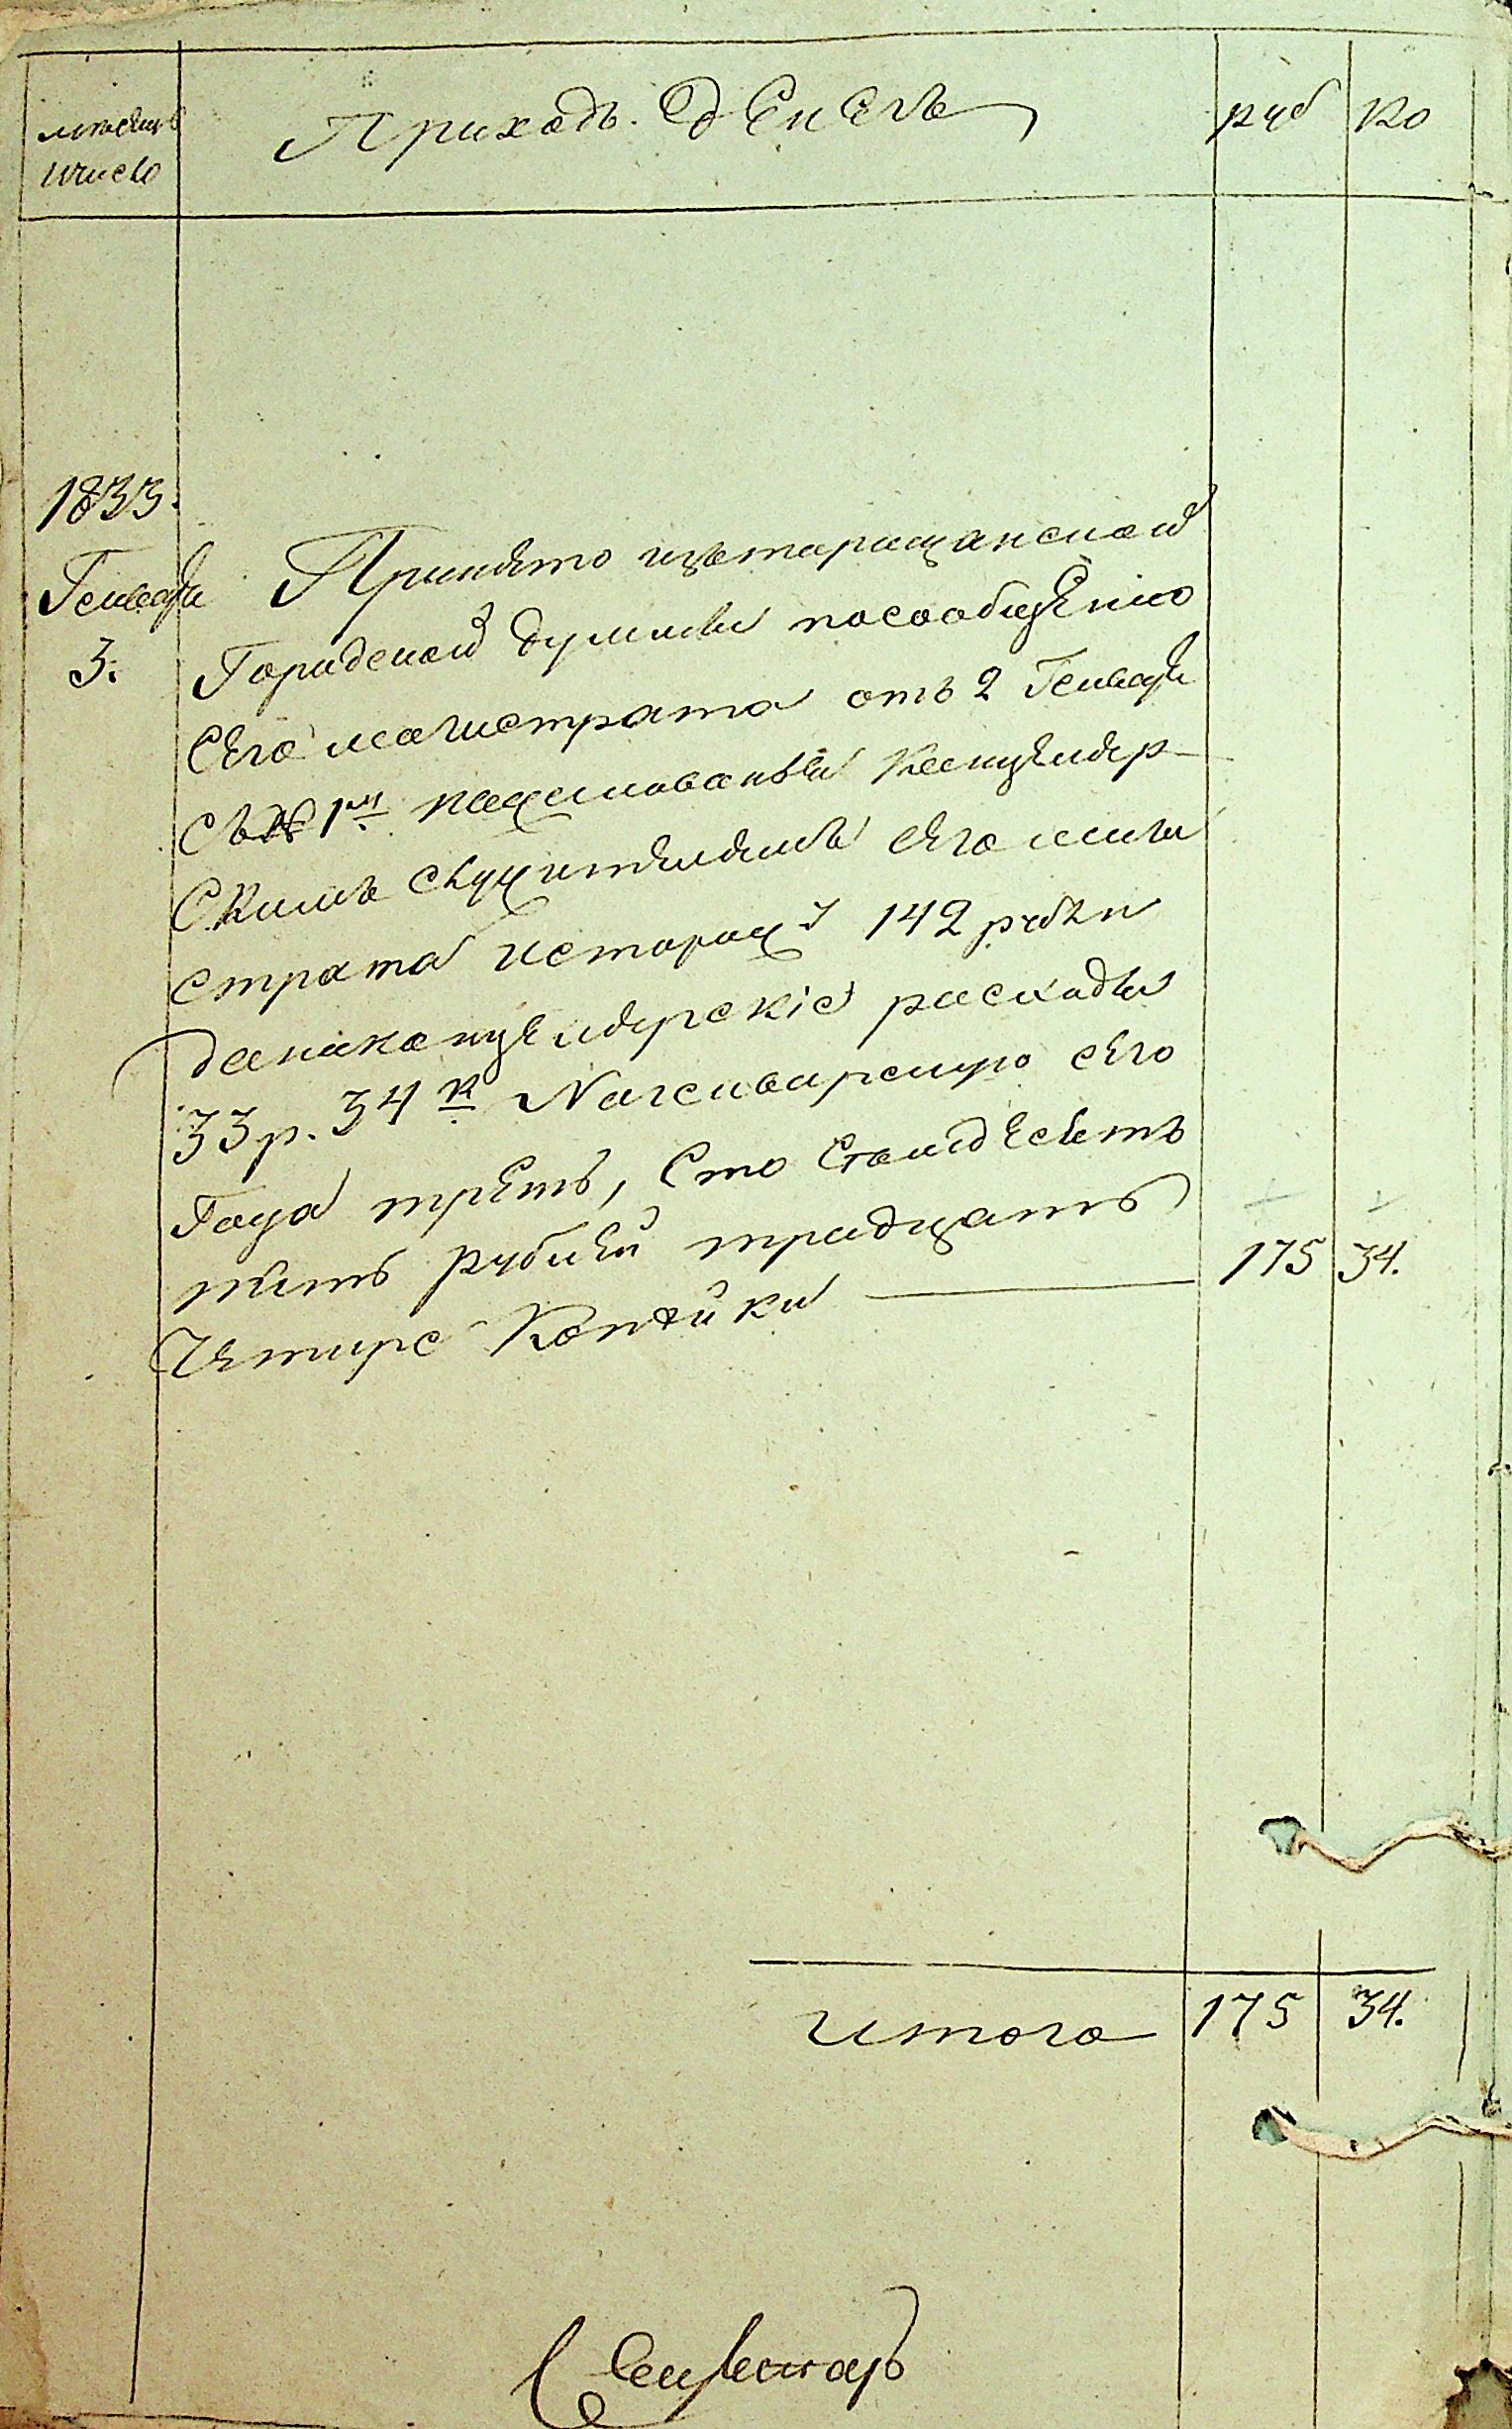 месяцъ и число Приходъ Денегъ руб ко
1833.
Генваря 3.
Принято изътаращанской
Городской думы посообщению
сего магистрата отъ 2 Генваря
съ № 1м нажалованье Канцеляр-
скимъ служителямъ сего маги
страта исторожу 142 рубли
данаканцелярскіе расходы
33 р. 34 к Нагенварскую сего
Года треть, Сто Семдесятъ
пять рублей тридцать
Четыре Копейки 175 34.
итого 175 34.